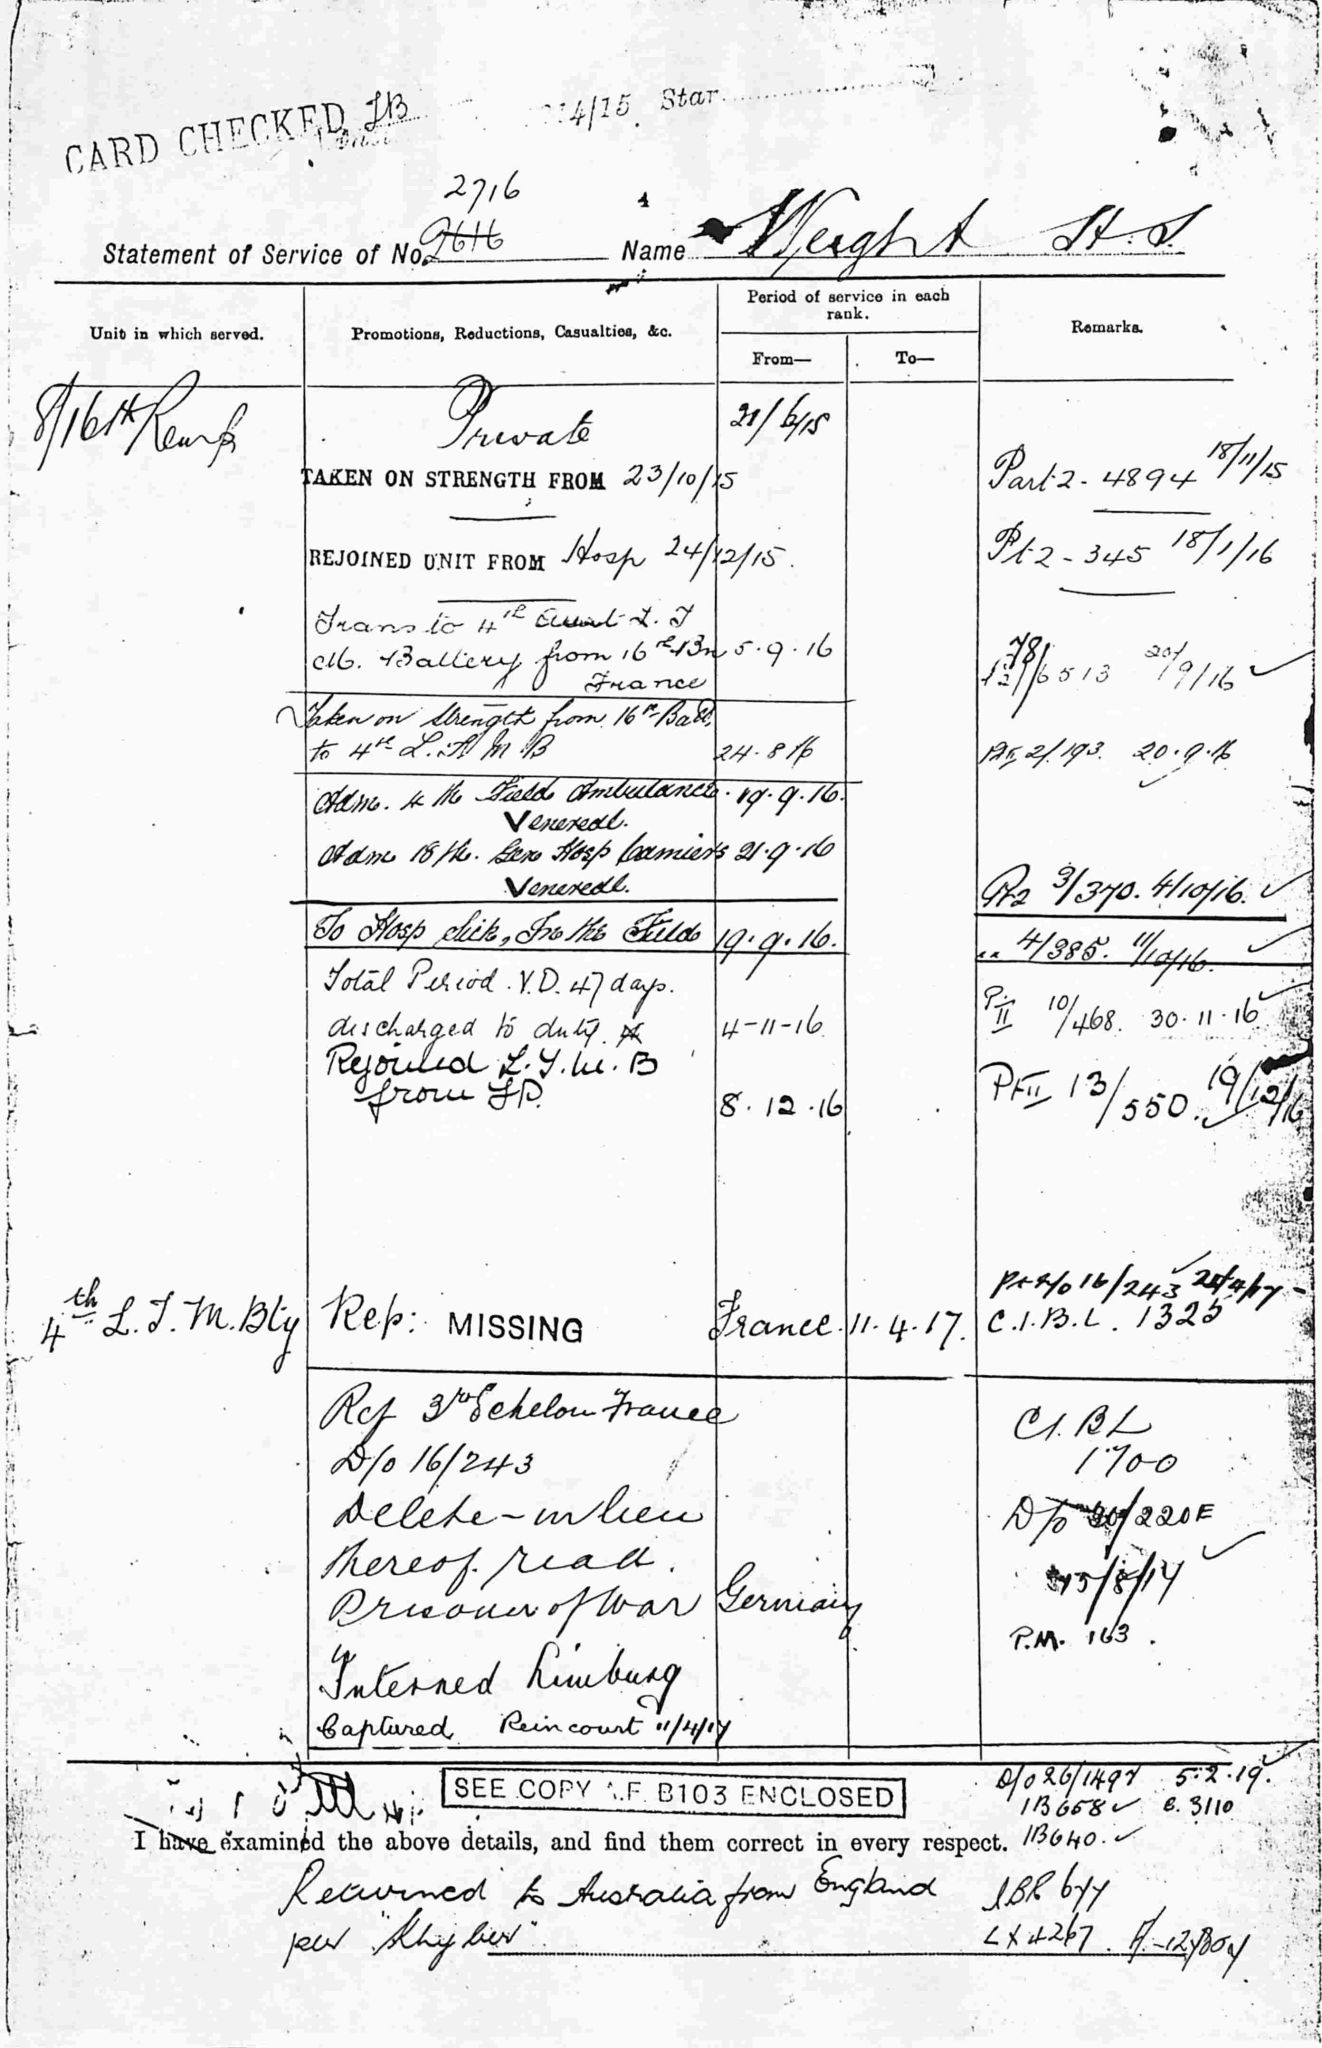 CARD CHECKED JB
14/15 Star
2716
4
Statement of Service of No. 2646 Name Weight H. S.
Unit in which served.
Promotions, Reductions, Casualties, &c.
Period of service in each rank.
From—
To—
Remarks.
8/16th Reinfs
Private 21/6/15
TAKEN ON STRENGTH FROM 23/10/15 Part 2 - 4894 18/11/15
REJOINED UNIT FROM Hosp 24/12/15. Pt 2 - 345 18/1/16
Trans to 4th Aust L. T
M. Battery from 16th Bn 5.9.16 6513 20/9/16
France
Taken on strength from 16th Batt.
to 4th L. T. M. B 24.8.16 Pt II 2/193. 20.9.16
Adm. 4th Field Ambulance. 19.9.16.
Veneredl.
Adm 18th. Gen Hosp Camiers 21.9.16
Veneredl. Pt 2 3/370. 4/10/16.
To Hosp sick, In the Field 19.9.16. .. 4/385. 11/10/16.
Total Period. V.D. 47 days.
discharged to duty. 4-11-16 Pt II 10/468. 30.11.16
Rejoined L.T.M.B
from 8.12.16 Pt II 13/550. 19/12/16
Pt 2 D/o 16/243 24/4/17
4th L.T.M. Bty Rep: MISSING France. 11.4.17. C.I.B.L. 1325
Ref 3rd Echelon France C.I.B.L
D/o 16/243 1700
Delete - in lieu D/o 30/220E
thereof. read. 15/8/17
Prisoner of War Germany
P.M. 163.
Interned Limburg
Captured Reincourt 11/4/17
SEE COPY A.F. B103 ENCLOSED
D/o 26/1497 5.2.19.
1B658 C. 3110
I have examined the above details, and find them correct in every respect. 1B640.
Returned to Australia from England
per "Khyber"
LX 4267